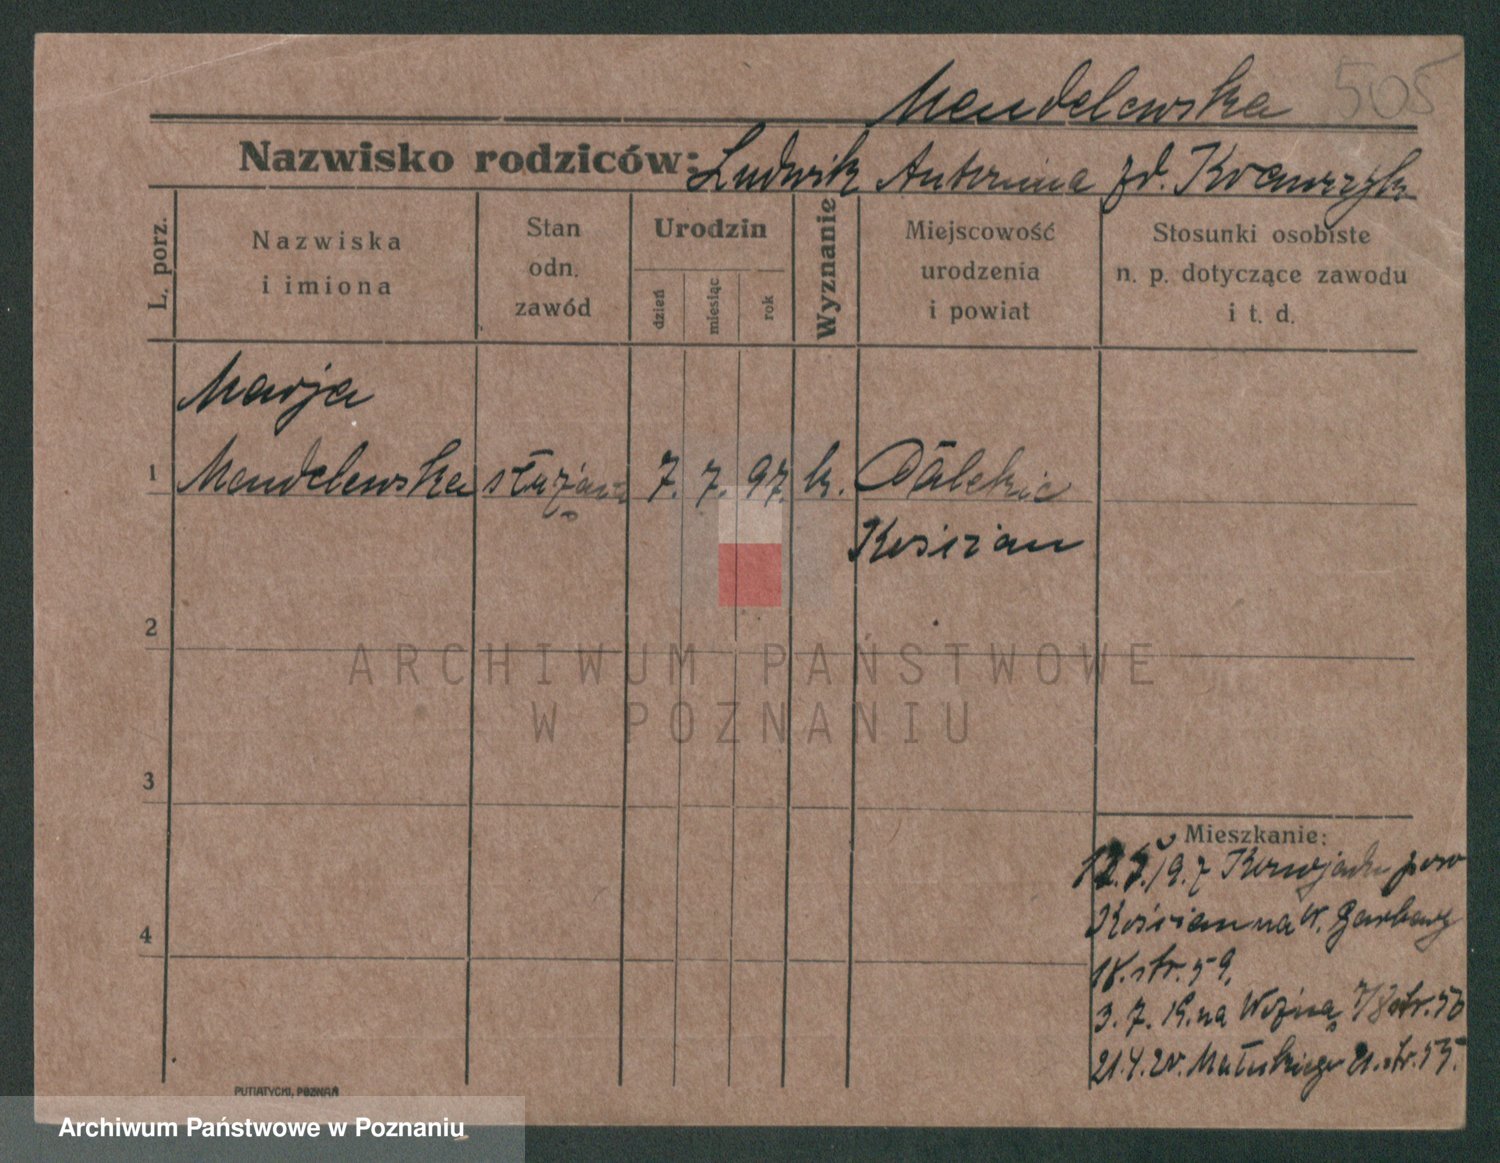 505
Mendelewska
Nazwisko rodziców: Ludwik Antonina zd. Krawczyk
L. porz.
Nazwiska
i imiona
Stan
odn.
zawód
Urodzin
dzień
miesiąc
rok
Wyznanie
Miejscowość
urodzenia
i powiat
Stosunki osobiste
n. p. dotyczące zawodu
i t. d.
Marja
1 Mendelewska służąca 7. 7. 97. k. Dalekie
Kościan
2
3
4
Mieszkanie:
19. pow
Kościan na W. Garbary
18. str. 59.
3. 7. K. na Woźną 7/8 str. 56
21.4.20. 21. str. 55.
PUTIATYCKI, POZNAŃ
ARCHIWUM PAŃSTWOWE
W POZNANIU
Archiwum Państwowe w Poznaniu